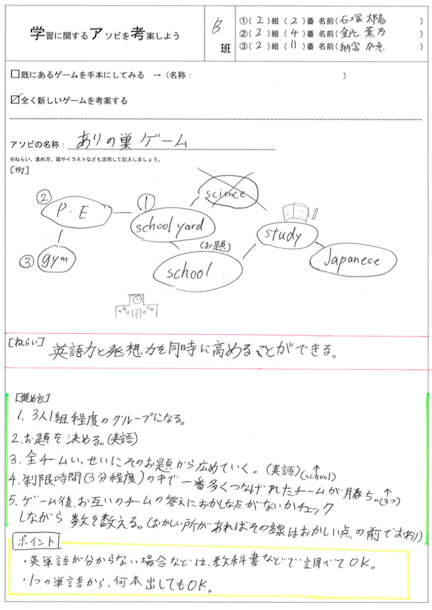 学習に関するアソビを考案しよう
B班
①(2)組(2)番 名前(石塚
②(2)組(4)番 名前(
③(2)組(11)番 名前(
□既にあるゲームを手本にしてみる → (名称: )
☑全く新しいゲームを考案する
アソビの名称: ありの巣ゲーム
※ねらい、進め方、図やイラストなども活用して記入しましょう。
[例]
science
② P.E
① school yard
study
③ gym
(お題)
school
Japanese
[ねらい] 英語力と発想力を同時に高めることができる。
[進め方]
1. 3人1組程度のグループになる。
2. お題を決める。(英語)
3. 全チームいっせいにそのお題から広めていく。(英語)(↑school)
4. 制限時間(3分程度)の中で一番多くつなげれたチームが勝ち。(↑3つ)
5. ゲーム後、お互いのチームの答えにおかしな点がないかチェック
しながら数を数える。(おかしい所があればその線はおかしい点の前で終わり)
ポイント
・英単語が分からない場合などは、教科書などで調べてOK。
・1つの単語から、何本出してもOK。